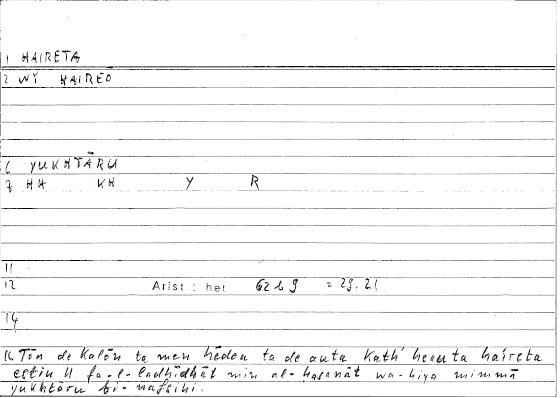 1 HAIRETA
2 WY HAIREŌ
6 YUKHTĀRU
7 HH KH Y R
11
12 Arist : het 62 b 9 = 29.21
14
16 Tōn de kalōn ta men hēdea ta de auta kath' heauta haireta
estin // fa-l-ladhīdhāt min al-ḥasanāt wa-hiya mimmā
yukhtāru bi-nafsihi.